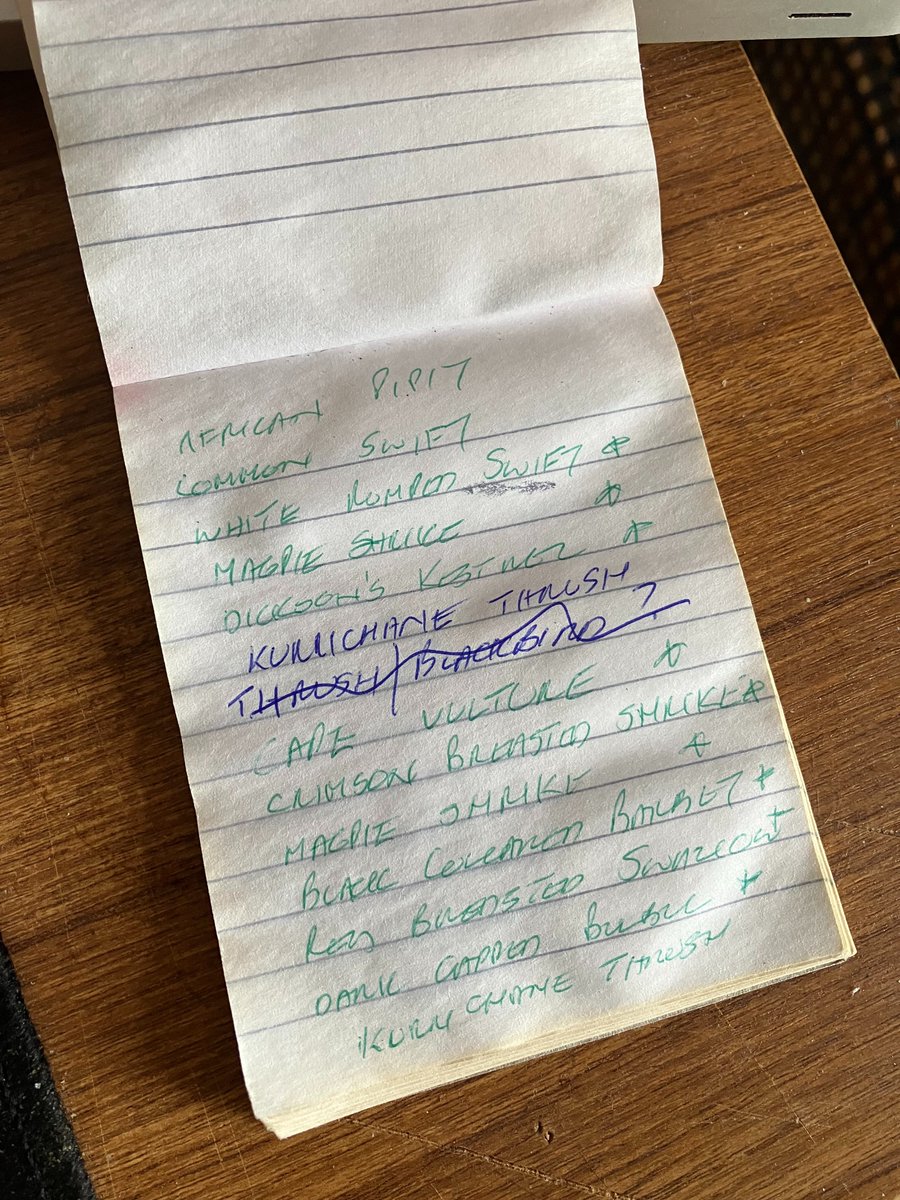 AFRICAN PIPIT
COMMON SWIFT
WHITE RUMPED SWIFT *
MAGPIE SHRIKE *
DICKSON'S KESTREL *
KURRICHANE THRUSH
THRUSH/BLACKBIRD?
CAPE VULTURE *
CRIMSON BREASTED SHRIKE *
MAGPIE SHRIKE *
BLACK COLLARED BARBET *
RED BREASTED SWALLOW *
DARK CAPPED BULBUL *
KURRICHANE THRUSH